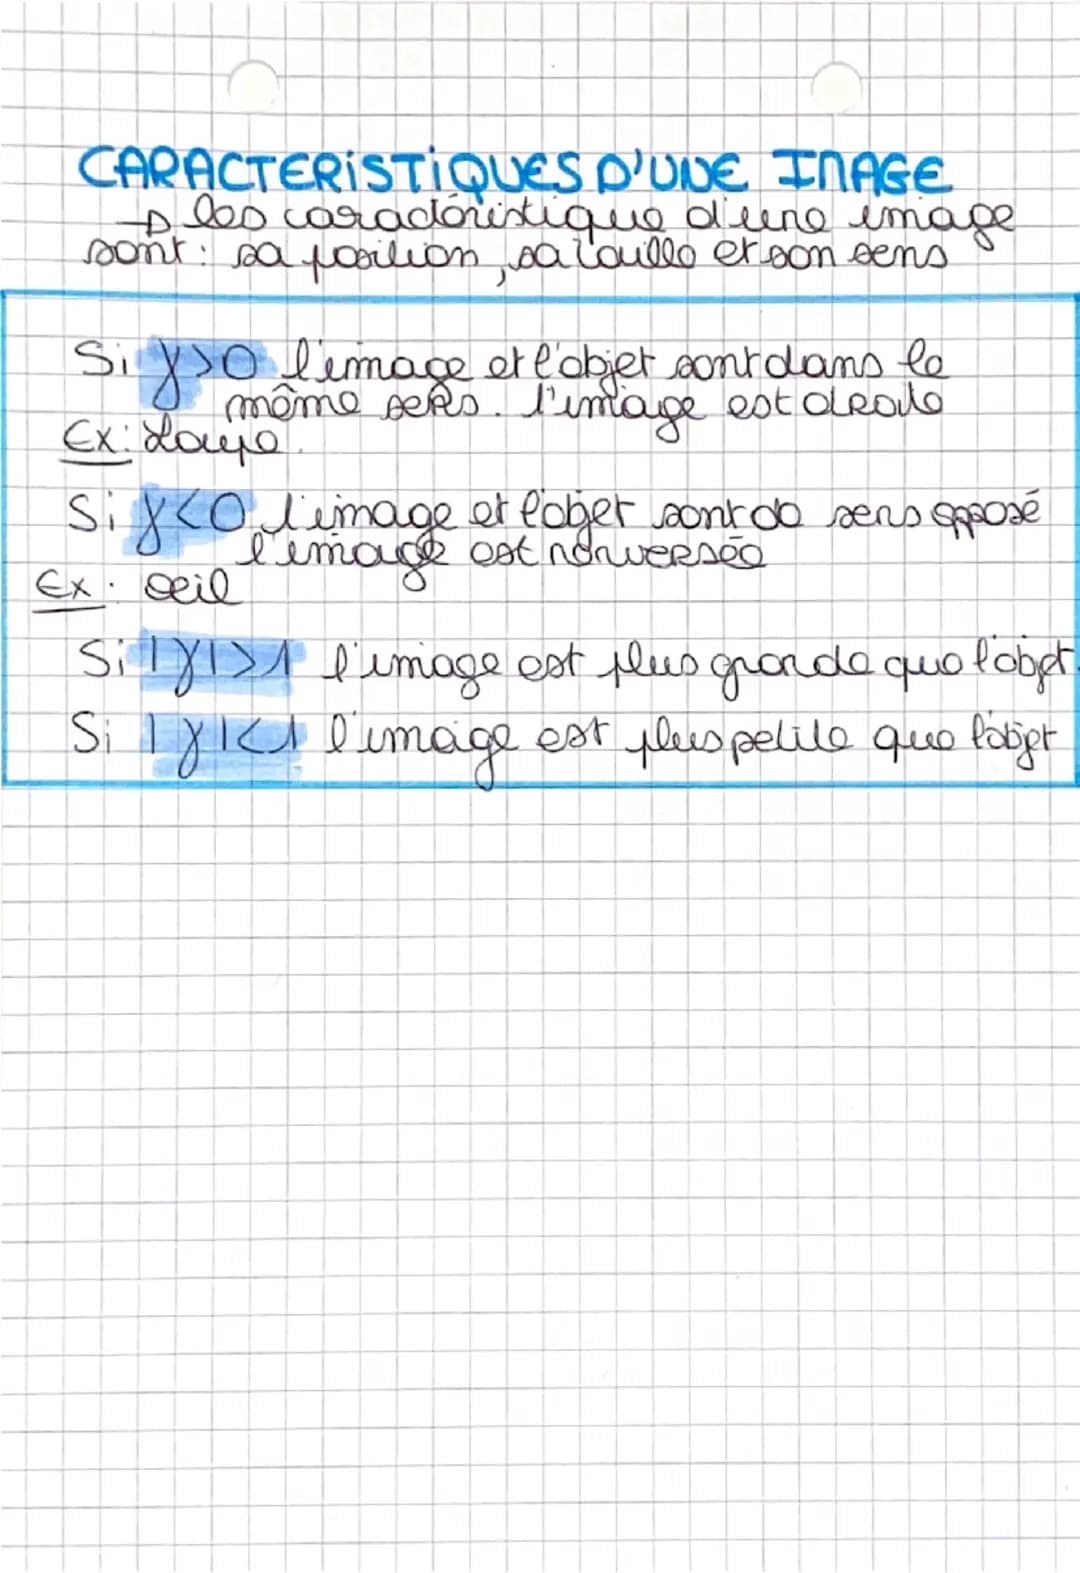 CARACTERISTIQUES D'UNE IMAGE
→ les caractéristique d'une image
sont : sa position, sa taille et son sens
Si γ>0 l'image et l'objet sont dans le
même sens. l'image est droite
Ex: Loupe.
Si γ<0 l'image et l'objet sont de sens opposé
l'image est renversée
Ex : oeil
Si |γ|>1 l'image est plus grande que l'objet.
Si |γ|<1 l'image est plus petite que l'objet